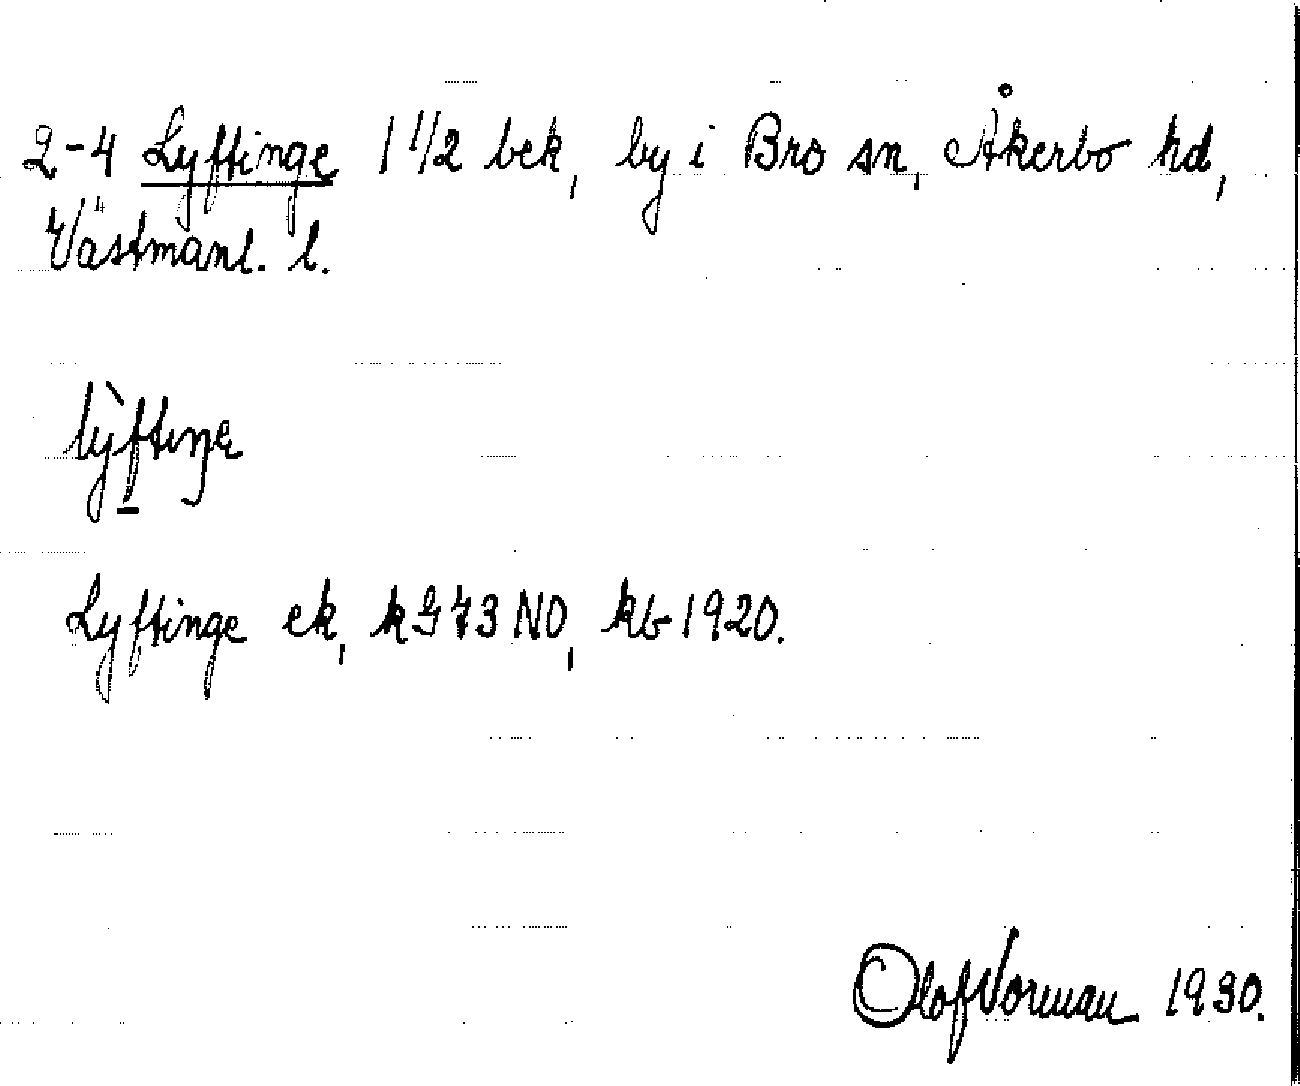 2-4 Lyftinge 1 1/2 bek, by i Bro sn, Åkerbo hd,
Västmanl. l.
lỳftıŋe
Lyftinge ek, kG 73 NO, kb 1920.
Olof Norman 1930.